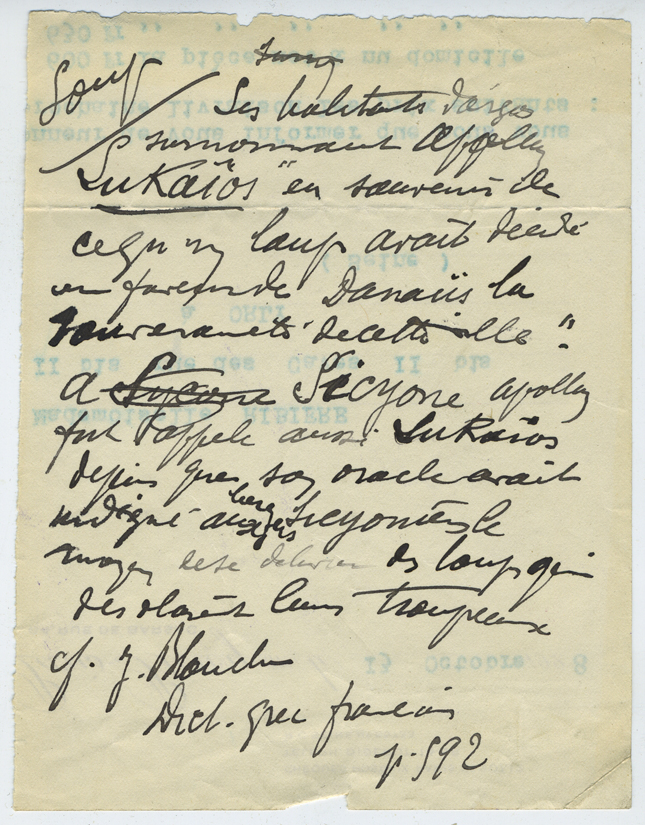 Loup
Les habitants d'argos
surnommaient Apollon
"Lukaïos" en souvenir de
ce qu'un loup avait décidé
en faveur de Danaüs la
souveraineté de cette ville".
A Sicyone apollon
fut appelé aussi Lukaïos
depuis que son oracle avait
indiqué aux Sicyoniens le
moyen de se délivrer des loups qui
désolaient leurs troupeaux
cf. J. Planche
Dict. grec français
p. 592